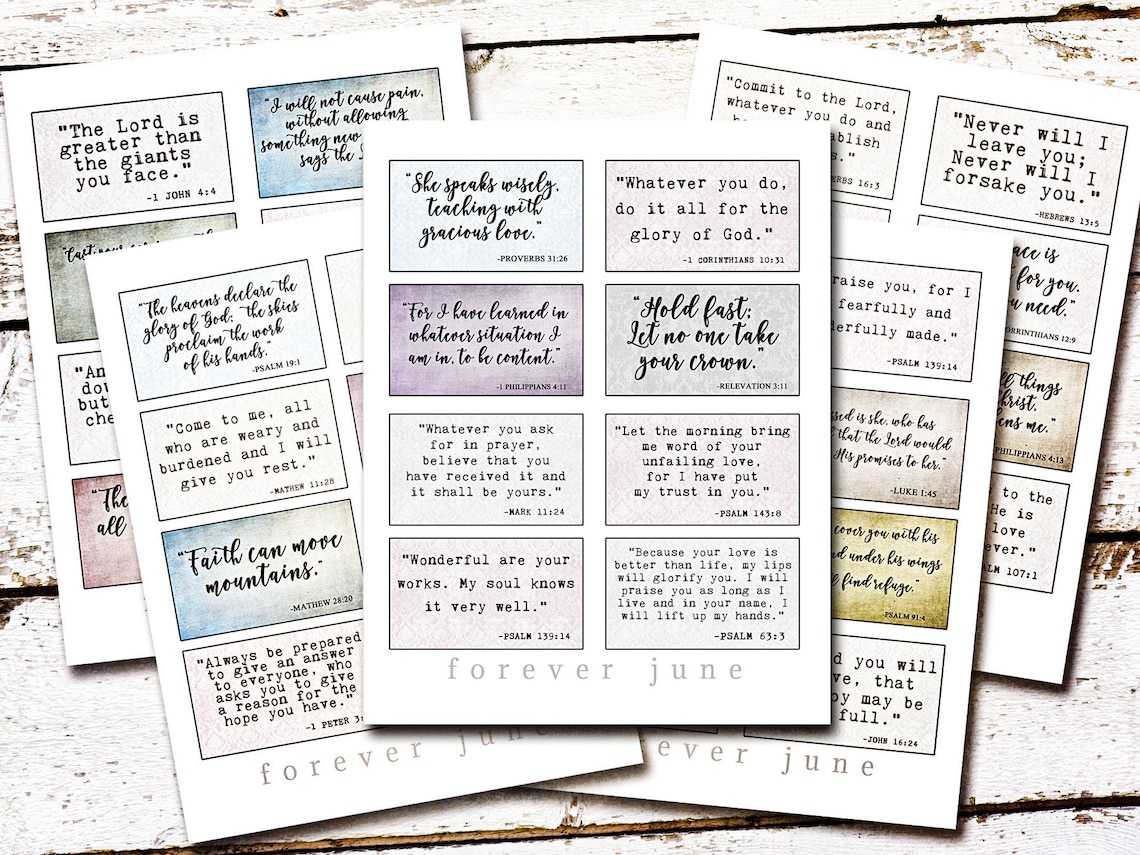 "The Lord is
greater than
the giants
you face."
-1 JOHN 4:4
"I will not cause pain,
without allowing
something new
says the
"The heavens declare the
glory of God; the skies
proclaim the work
of his hands."
-PSALM 19:1
"Come to me, all
who are weary and
burdened and I will
give you rest."
-MATHEW 11:28
"Faith can move
mountains."
-MATHEW 28:20
"Always be prepared
to give an answer
to everyone, who
asks you to give
a reason for the
hope you have."
-1 PETER
forever june
"She speaks wisely,
teaching with
gracious love."
-PROVERBS 31:26
"Whatever you do,
do it all for the
glory of God."
-1 CORINTHIANS 10:31
"For I have learned in
whatever situation I
am in, to be content."
-1 PHILIPPIANS 4:11
"Hold fast;
Let no one take
your crown."
-RELEVATION 3:11
"Whatever you ask
for in prayer,
believe that you
have received it and
it shall be yours."
-MARK 11:24
"Let the morning bring
me word of your
unfailing love,
for I have put
my trust in you."
-PSALM 143:8
"Wonderful are your
works. My soul knows
it very well."
-PSALM 139:14
"Because your love is
better than life, my lips
will glorify you. I will
praise you as long as I
live and in your name, I
will lift up my hands."
-PSALM 63:3
forever june
"Commit to the Lord,
whatever you do and
16:3
"Never will I
leave you;
Never will I
forsake you."
-HEBREWS 13:5
is
for you.
need."
12:9
things
me."
PHILIPPIANS 4:13
to the
He is
love
107:1
praise you, for I
fearfully and
made."
-PSALM 139:14
is she, who has
that the Lord would
His promises to her.
-LUKE 1:45
cover you with his
under his wings
find refuge."
-PSALM 91:4
you will
that
may be
full."
-JOHN 16:24
ever june